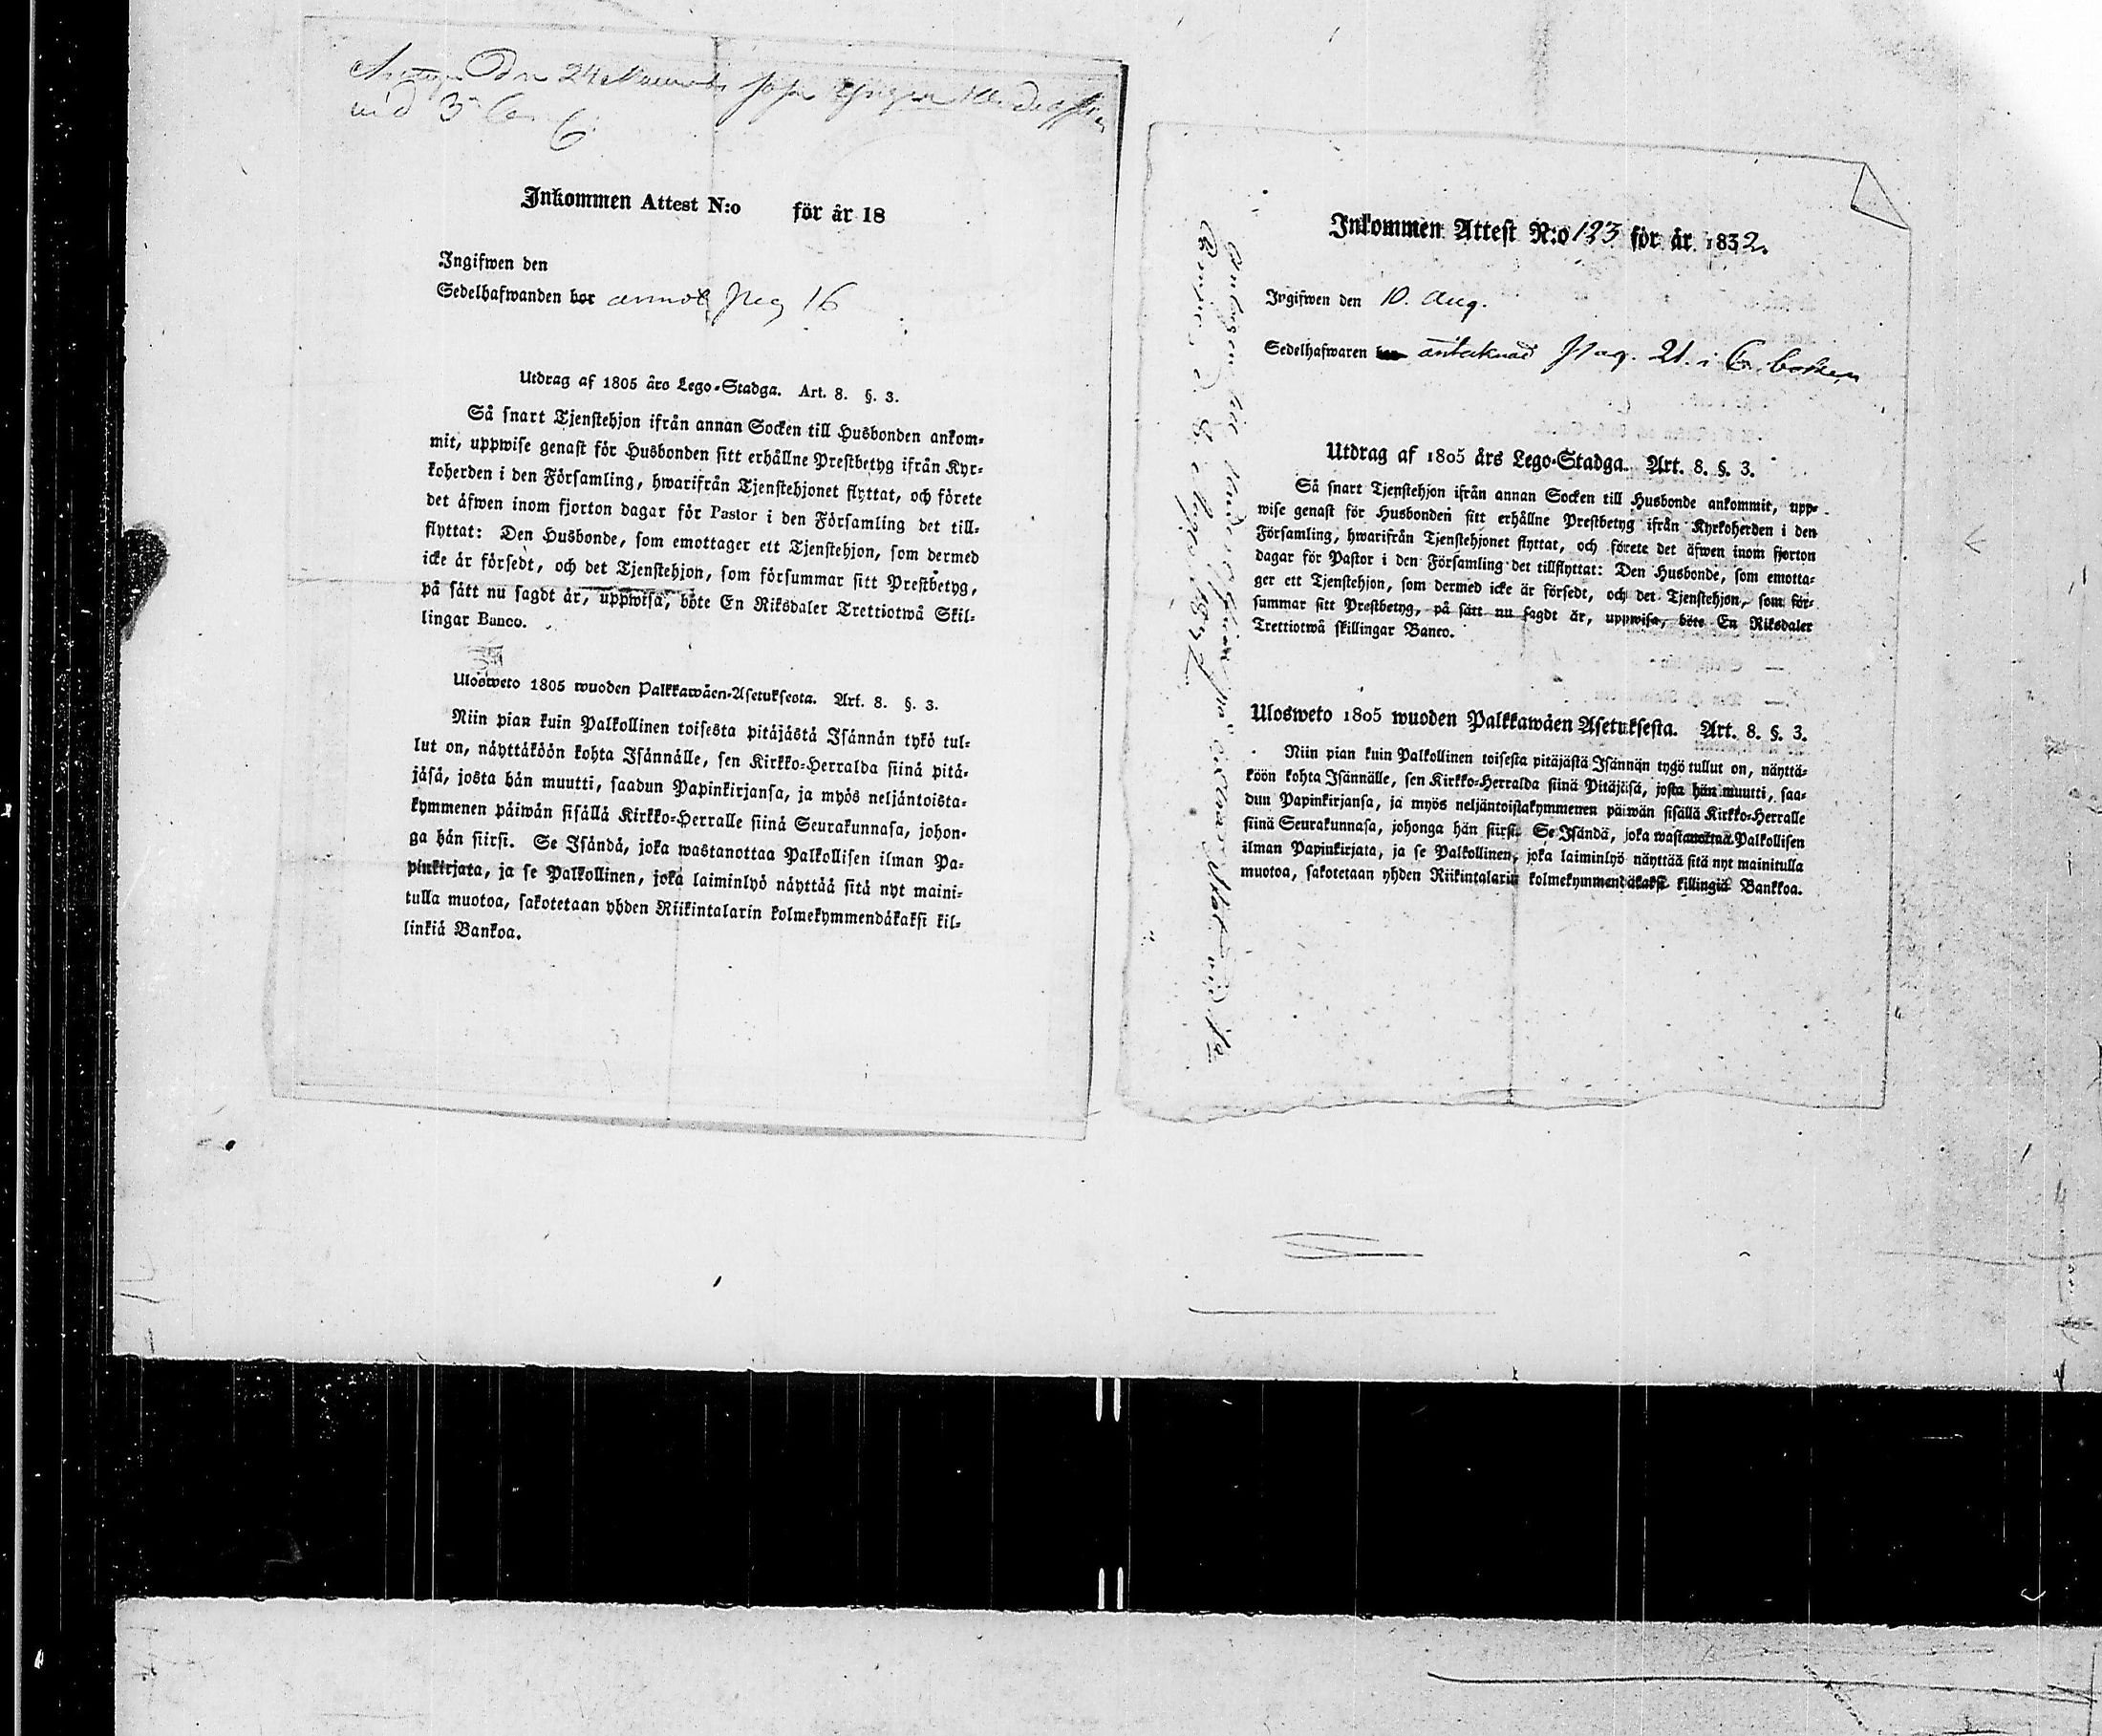 den 24
vid 3
6
Inkommen Attest N:o för år 18
Ingifwen den
Sedelhafwanden bor 16
Utdrag af 1805 års Lego-Stadga. Art. 8. §. 3.
Så snart Tjenstehjon ifrån annan Socken till Husbonden ankom-
mit, uppwise genast för Husbonden sitt erhållne Prestbetyg ifrån Kyr-
koherden i den Församling, hwarifrån Tjenstehjonet flyttat, och förete
det äfwen inom fjorton dagar för Pastor i den Församling det till-
flyttat: Den Husbonde, som emottager ett Tjenstehjon, som dermed
icke är försedt, och det Tjenstehjon, som försummar sitt Prestbetyg,
på sätt nu sagdt är, uppwisa, böte En Riksdaler Trettiotwå Skil-
lingar Banco.
Ulosweto 1805 wuoden Palkkawäen-Asetuksesta. Art. 8. §. 3.
Niin pian kuin Palkollinen toisesta pitäjästä Isännän tykö tul-
lut on, näyttäköön kohta Isännälle, sen Kirkko-Herralda siinä pitä-
jäsä, josta hän muutti, saadun Papinkirjansa, ja myös neljäntoista-
kymmenen päiwän sisällä Kirkko-Herralle siinä Seurakunnasa, johon-
ga hän siirsi. Se Isändä, joka wastanottaa Palkollisen ilman Pa-
pinkirjata, ja se Palkollinen, joka laiminlyö näyttää sitä nyt maini-
tulla muotoa, sakotetaan yhden Riikintalarin kolmekymmendäkaksi kil-
linkiä Bankoa.
Inkommen Attest N:o 123 för år 1832.
Ingifwen den 10. Aug.
Sedelhafwaren antecknad Pag. 21. i C. boken
Utdrag af 1805 års Lego-Stadga. Art. 8. §. 3.
Så snart Tjenstehjon ifrån annan Socken till Husbonde ankommit, upp-
wise genast för Husbonden sitt erhållne Prestbetyg ifrån Kyrkoherden i den
Församling, hwarifrån Tjenstehjonet flyttat, och förete det äfwen inom fjorton
dagar för Pastor i den Församling det tillflyttat: Den Husbonde, som emotta-
ger ett Tjenstehjon, som dermed icke är försedt, och det Tjenstehjon, som för-
summar sitt Prestbetyg, på sätt nu sagdt är, uppwisa, böte En Riksdaler
Trettiotwå skillingar Banco.
Ulosweto 1805 wuoden Palkkawäen Asetuksesta. Art. 8. §. 3.
Niin pian kuin Palkollinen toisesta pitäjästä Isännän tygö tullut on, näyttä-
köön kohta Isännälle, sen Kirkko-Herralda siinä Pitäjäsä, josta hän muutti, saa-
dun Papinkirjansa, ja myös neljäntoistakymmenen päiwän sisällä Kirkko-Herralle
siinä Seurakunnasa, johonga hän siirsi. Se Isändä, joka wastanottaa Palkollisen
ilman Papinkirjata, ja se Palkollinen, joka laiminlyö näyttää sitä nyt mainitulla
muotoa, sakotetaan yhden Riikintalarin kolmekymmendäkaksi killingiä Bankkoa.